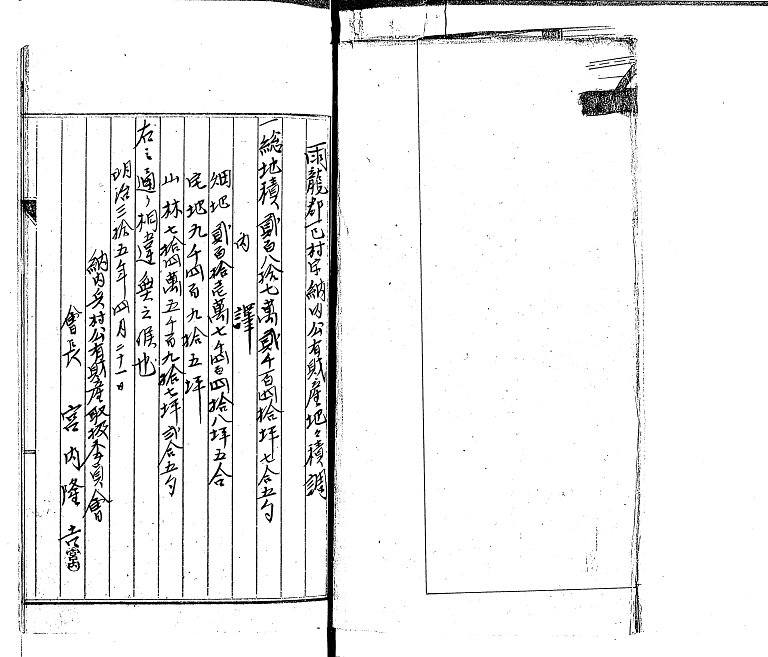 雨龍郡一已村字納内公有財産地々積調
一総地積貳百八拾七萬貳千百四拾坪七合五勺
内譯
畑地貳百拾壱萬七千四百四拾八坪五合
宅地九千四百九拾五坪
山林七拾四萬五千百九拾七坪弐合五勺
右之通リ相違無之候也
明治三拾五年四月二十一日
納内兵村公有財産取扱委員會
會長 宮内隆吉